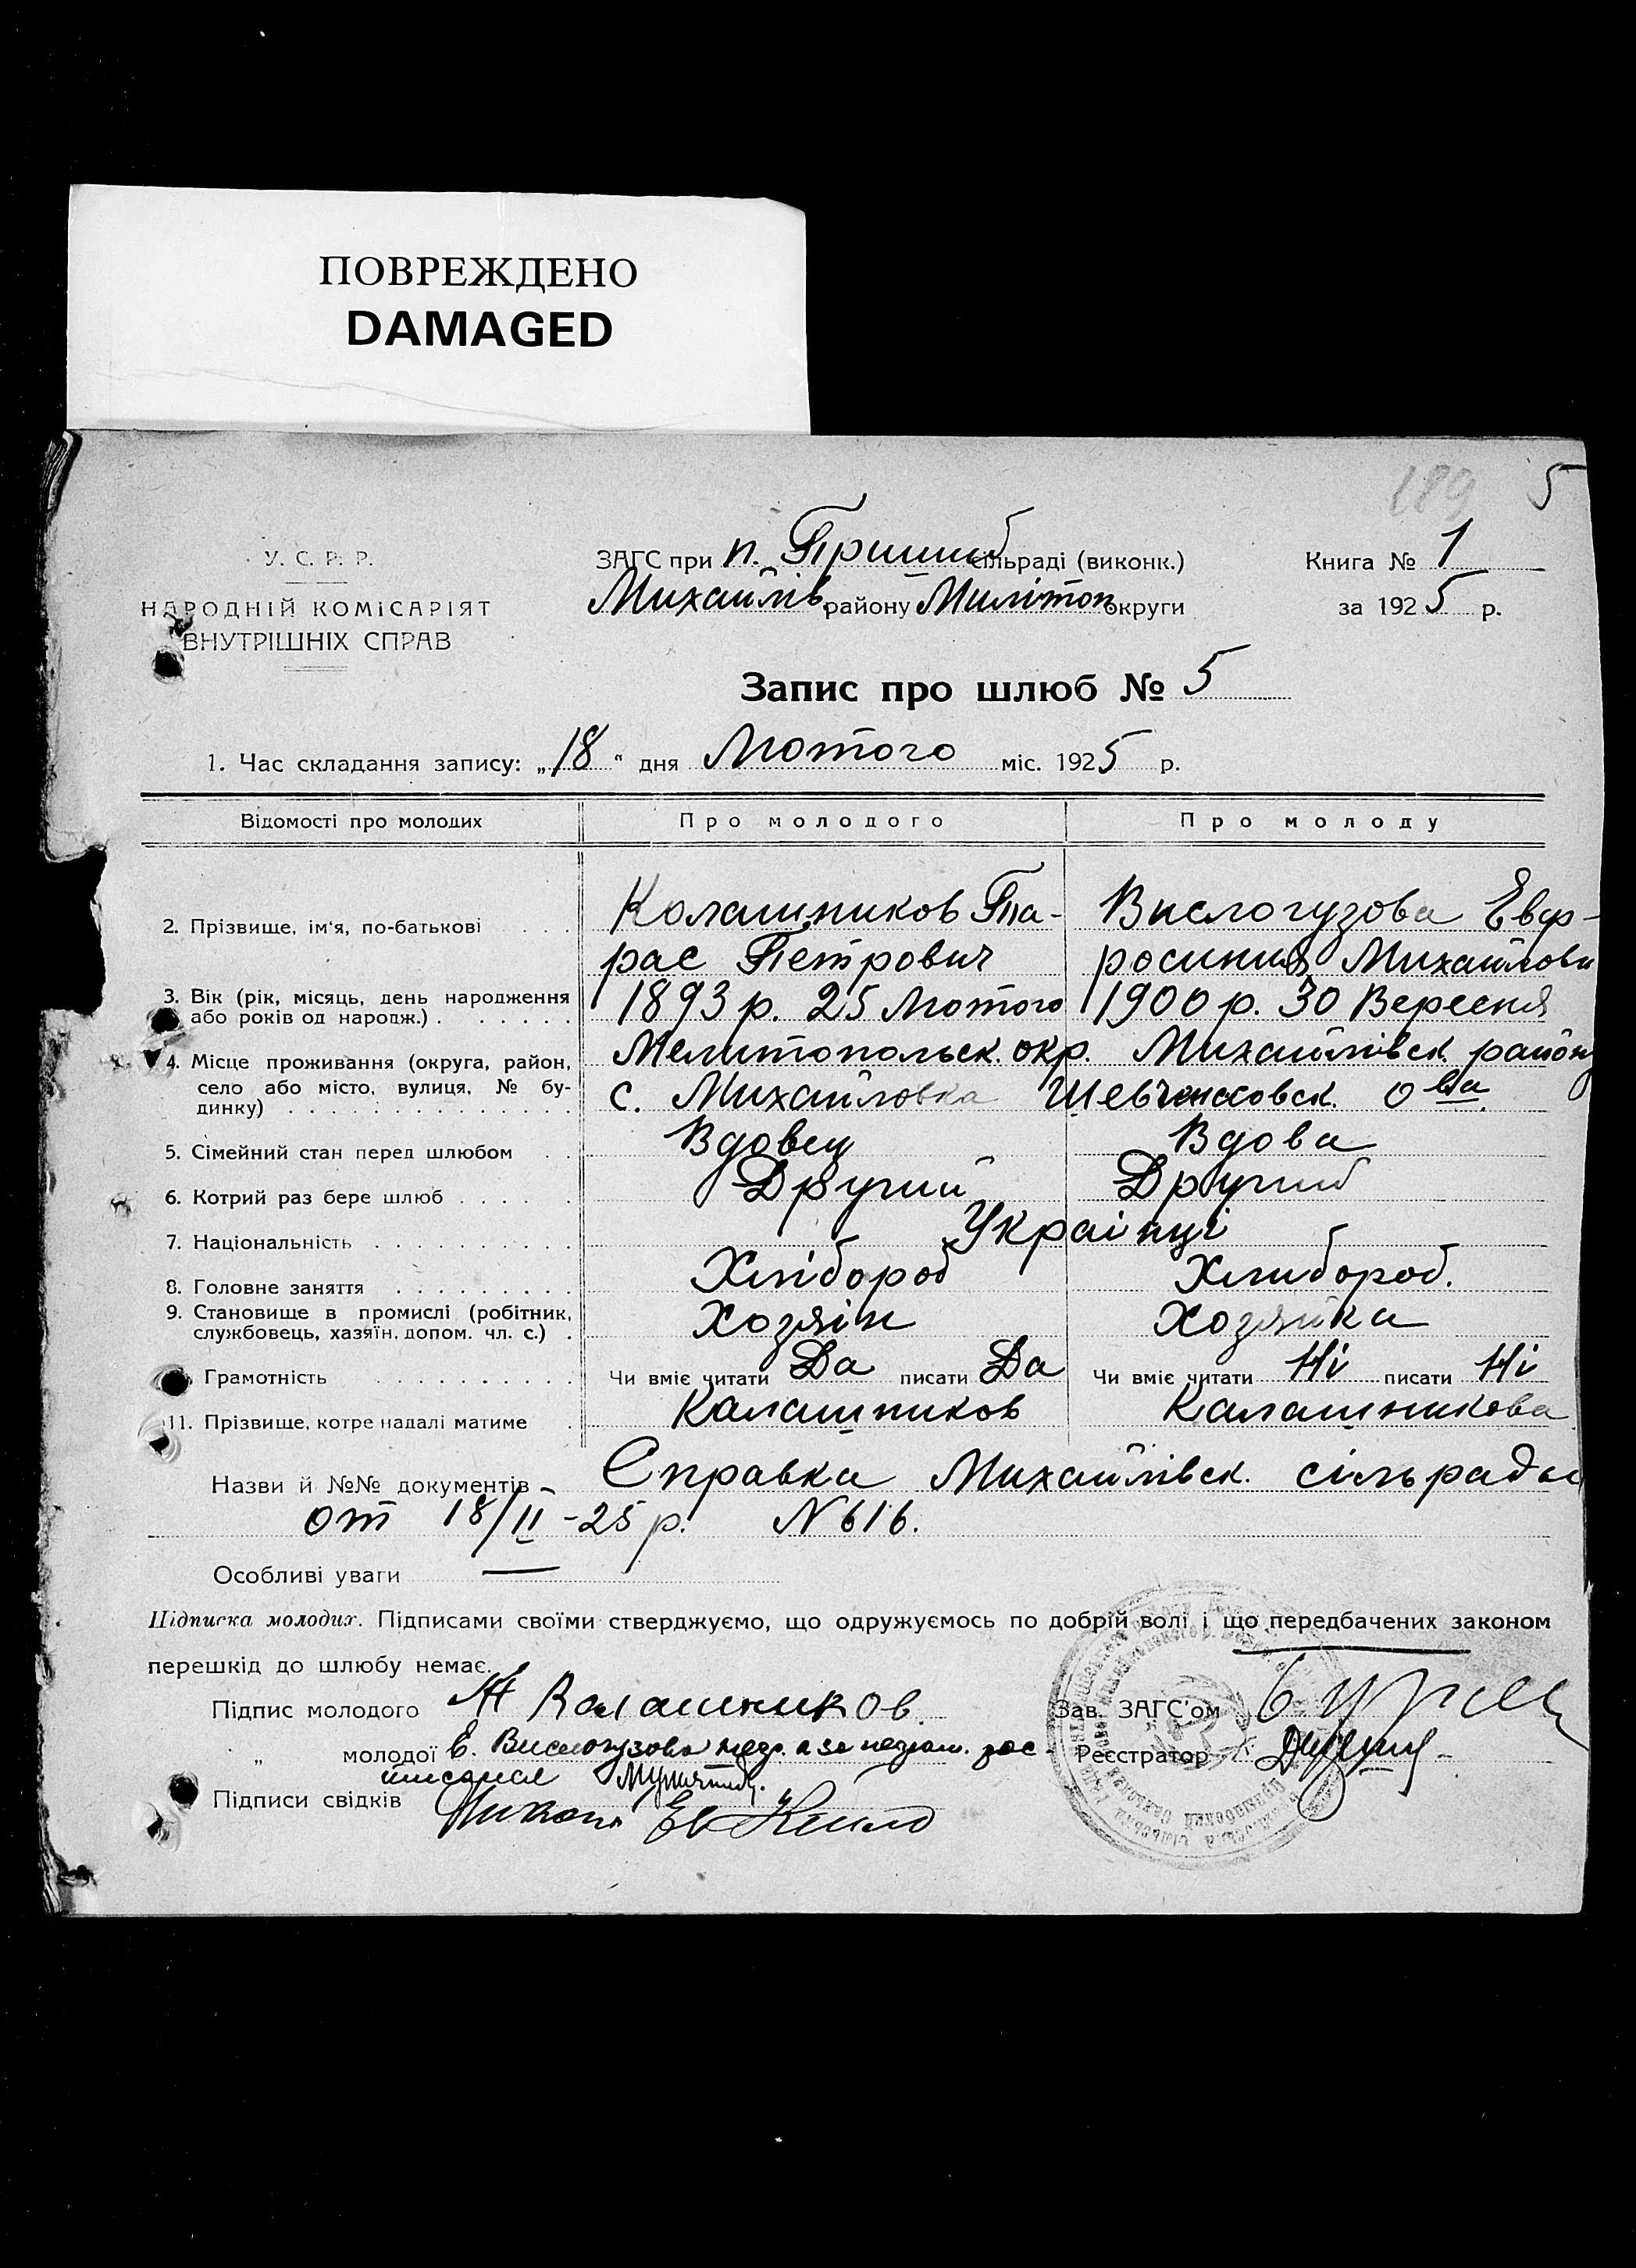 ПОВРЕЖДЕНО
DAMAGED
189 5
У. С. Р. Р.
НАРОДНІЙ КОМІСАРІЯТ
ВНУТРІШНІХ СПРАВ
ЗАГС при п. Пришиб сільраді (виконк.)
Михайлів району Милітоп округи
Книга № 1
за 1925 р.
Запис про шлюб № 5
1. Час складання запису: „18“ дня Лютого міс. 1925 р.
Відомості про молодих Про молодого Про молоду
2. Прізвище, ім'я, по-батькові Колашников Та- Вислогузова Евф-
рас Петрович росиния Михайловн
3. Вік (рік, місяць, день народження або років од народж.) 1893 р. 25 Лютого 1900 р. 30 Вересня
4. Місце проживання (округа, район, Мелитопольск. окр. Михайлівск. району
село або місто, вулиця, № бу-
динку) с. Михайловка Шевченковск. о-ва.
5. Сімейний стан перед шлюбом Вдовец Вдова
6. Котрий раз бере шлюб Другий Другий
7. Національність Украінці
8. Головне заняття Хлібороб Хлибороб.
9. Становище в промислі (робітник, службовець, хазяїн, допом. чл. с.) Хозяін Хозяйка
Грамотність Чи вміє читати Да писати Да Чи вміє читати Ні писати Ні
11. Прізвище, котре надалі матиме Калашников Калашникова
Назви й №№ документів Справка Михайлівск. сільради
от 18/II-25 р. N 616.
Особливі уваги —
Підписка молодих. Підписами своїми стверджуємо, що одружуємось по добрій волі і що передбачених законом
перешкід до шлюбу немає.
Підпис молодого Колашников. Зав. ЗАГС'ом
„ молодої Е. Вислогузова Реєстратор
Підписи свідків